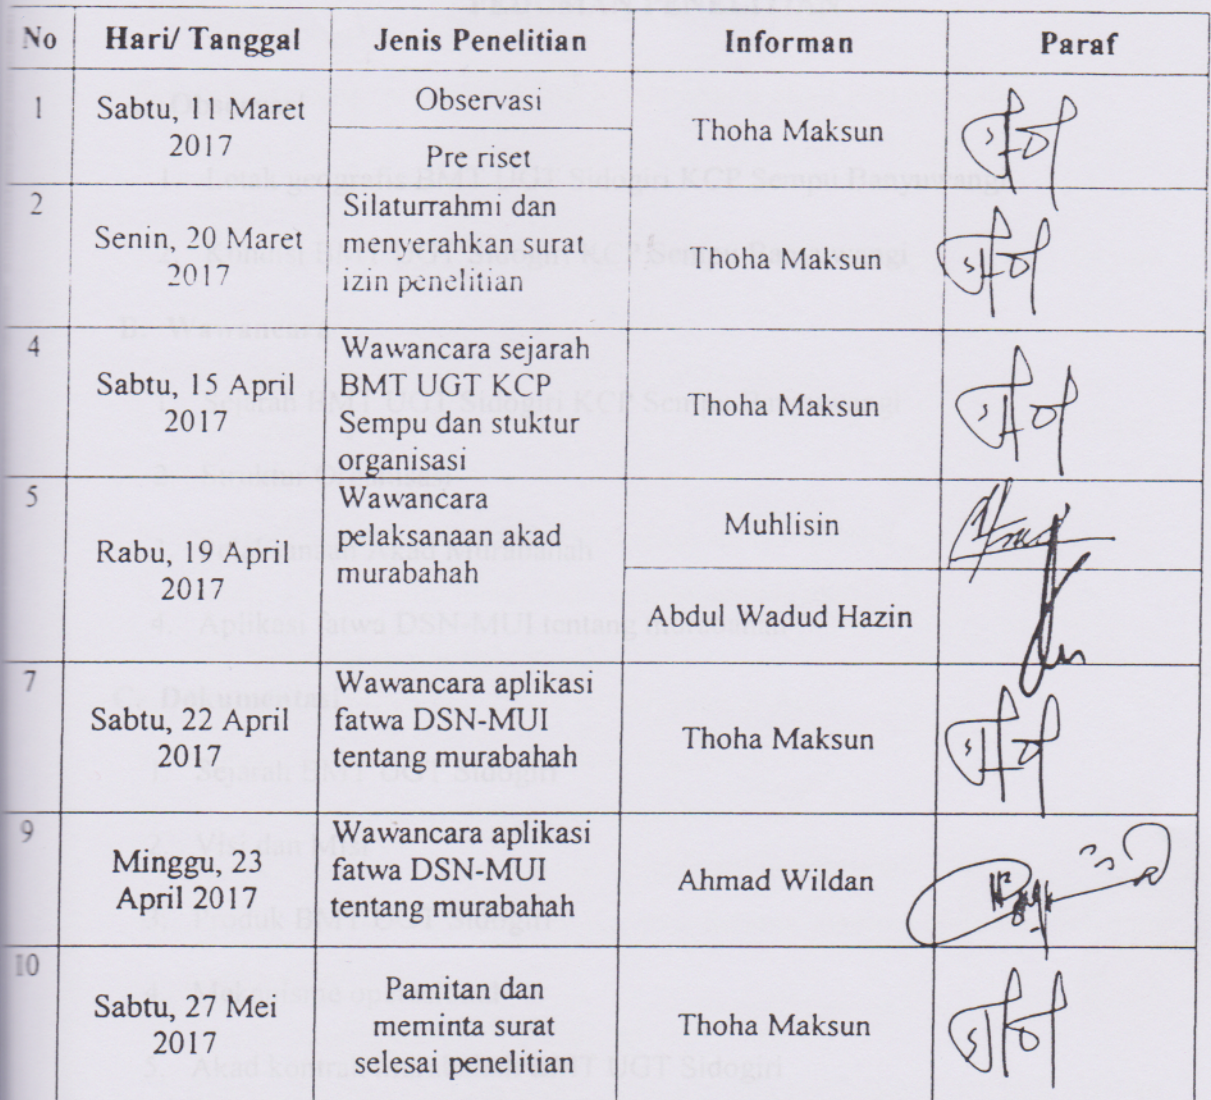 No Hari/ Tanggal Jenis Penelitian Informan Paraf
1 Sabtu, 11 Maret 2017 Observasi Thoha Maksun
Pre riset
2 Senin, 20 Maret 2017 Silaturrahmi dan menyerahkan surat izin penelitian Thoha Maksun
4 Sabtu, 15 April 2017 Wawancara sejarah BMT UGT KCP Sempu dan stuktur organisasi Thoha Maksun
5 Rabu, 19 April 2017 Wawancara pelaksanaan akad murabahah Muhlisin
Abdul Wadud Hazin
7 Sabtu, 22 April 2017 Wawancara aplikasi fatwa DSN-MUI tentang murabahah Thoha Maksun
9 Minggu, 23 April 2017 Wawancara aplikasi fatwa DSN-MUI tentang murabahah Ahmad Wildan
10 Sabtu, 27 Mei 2017 Pamitan dan meminta surat selesai penelitian Thoha Maksun